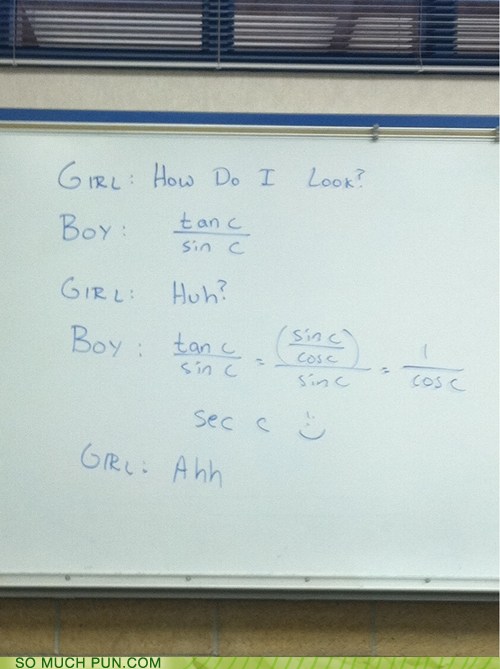 GIRL: HOW DO I LOOK?
BOY: tan c / sin c
GIRL: HUH?
BOY: tan c / sin c = (sin c / cos c) / sin c = 1 / cos c
sec c :)
GIRL: Ahh
SO MUCH PUN.COM